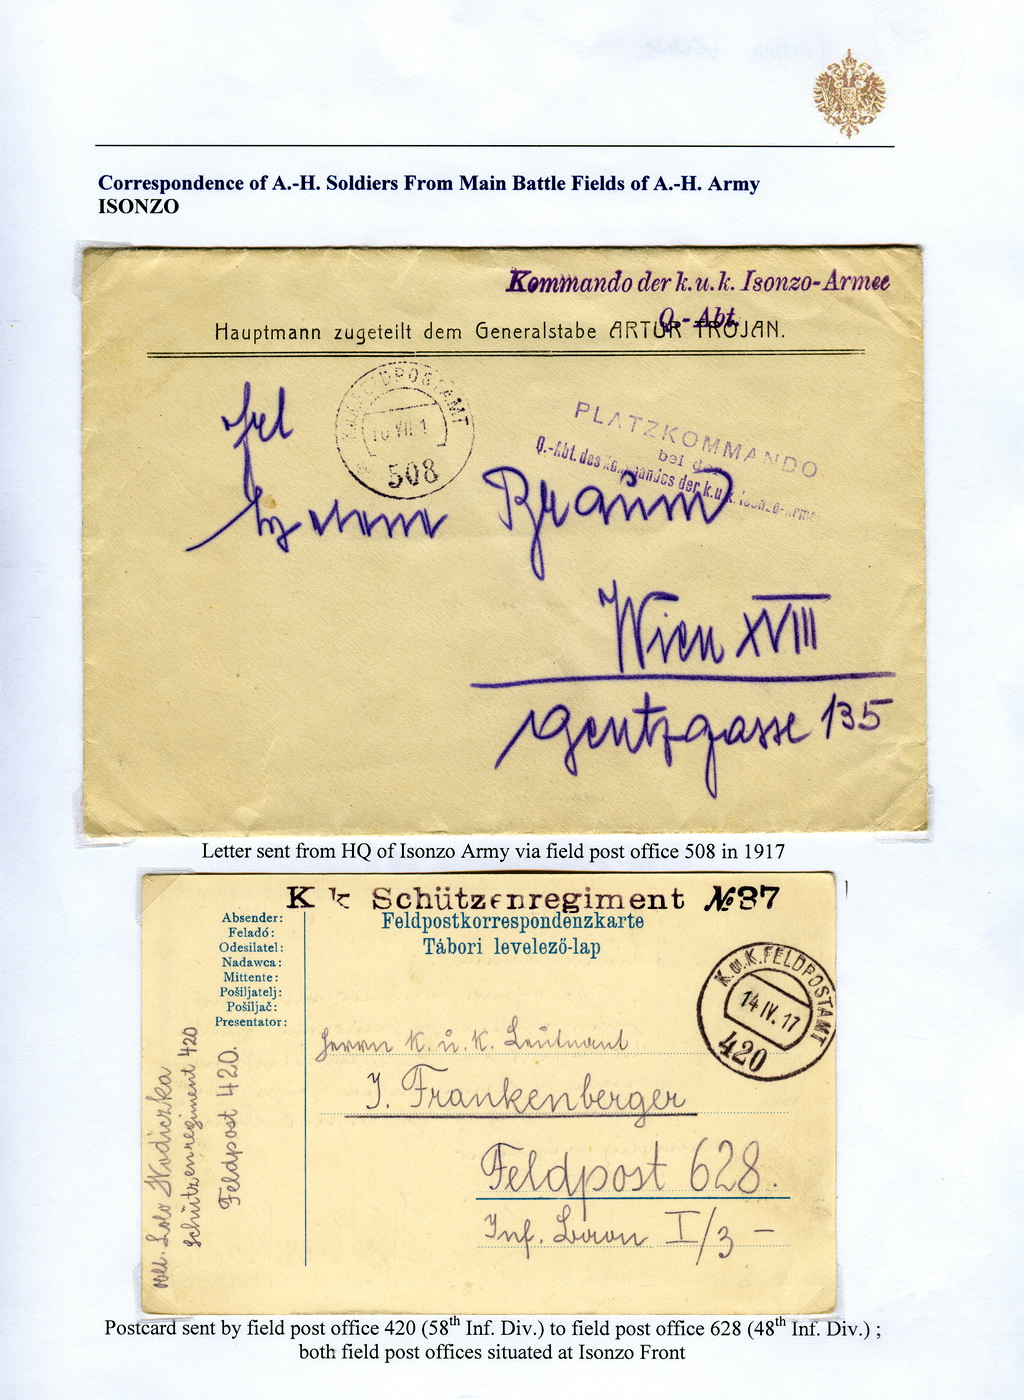 Correspondence of A.-H. Soldiers From Main Battle Fields of A.-H. Army
ISONZO
Kommando der k.u.k. Isonzo-Armee
Q.-Abt.
Hauptmann zugeteilt dem Generalstabe ARTUR TROJAN.
K.u.K. FELDPOSTAMT
10 VII 1
508
PLATZKOMMANDO
bei der
Q.-Abt. des Kommandos der k.u.k. Isonzo-Armee
Frl
Braun
Wien XVIII
Gentzgasse 135
Letter sent from HQ of Isonzo Army via field post office 508 in 1917
K k Schützenregiment № 37
Feldpostkorrespondenzkarte
Tábori levelező-lap
Absender:
Feladó:
Odesílatel:
Nadawca:
Mittente:
Pošiljatelj:
Pošiljač:
Presentator:
K.u.K. FELDPOSTAMT
14 IV. 17
420
Schützenregiment 420
Feldpost 420.
Herrn k. u. k. Leutnant
J. Frankenberger
Feldpost 628.
Inf. Baon I/3 –
Postcard sent by field post office 420 (58th Inf. Div.) to field post office 628 (48th Inf. Div.) ;
both field post offices situated at Isonzo Front